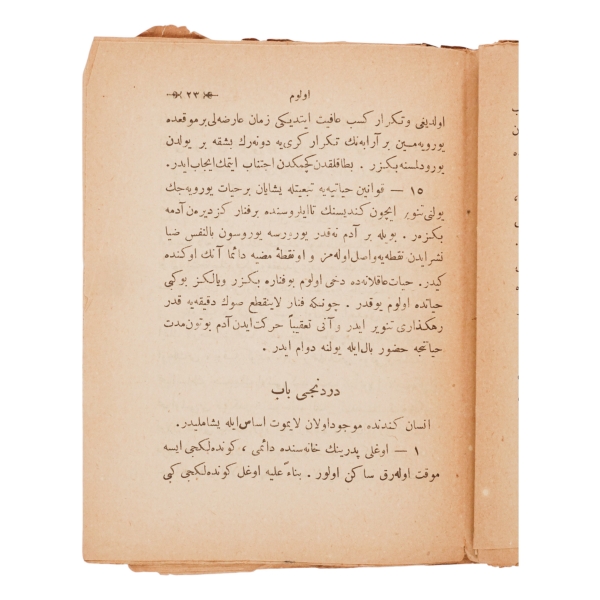 اولوم
﴿ ٢٣ ﴾
اولديغى وتكرار كسب عافيت ايتديكى زمان عارضه‌لى بر موقعده
يورويه‌مين بر آرابه‌نك تكرار كرى‌يه دونه‌رك بشقه بر يولدن
يورودلمسنه بكزر . بطاقلقدن كچمكدن اجتناب ايتمك ايجاب ايدر .
١٥ — قوانين حياتيه‌يه تبعيتله يشايان بر حيات يورويه‌جك
يولنى تنوير ايچون كنديسنك تا ايلروسنده بر فنار كزديره‌ن آدمه
بكزر . بويله بر آدم نه‌قدر يورورسه يوروسون بالنفس ضيا
نشر ايدن نقطه‌يه واصل اوله‌مز و او نقطهٔ مضيه دائما آنك اوكنده
كيدر . حيات عاقلانه‌ده دخى اولوم بو فناره بكزر و يالكز بو كبى
حياتده اولوم يوقدر . چونكه فنار لاينقطع صوك دقيقه‌يه قدر
رهكذارى تنوير ايدر و آنى تعقيباً حركت ايدن آدم بوتون مدت
حياتنجه حضور بال ايله يولنه دوام ايدر .
دردنجى باب
انسان كندنده موجود اولان لايموت اساس ايله يشامليدر .
١ — اوغلى پدرينك خانه‌سنده دائمى ، كونده‌لكجى ايسه
موقت اوله‌رق ساكن اولور . بناءً عليه اوغل كونده‌لكجى كبى